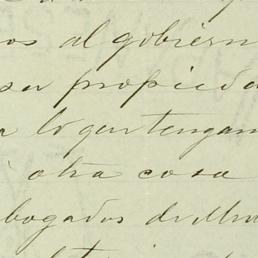 os al gobiern
su propieda
a lo que tengam
otra cosa
bogados de Mu